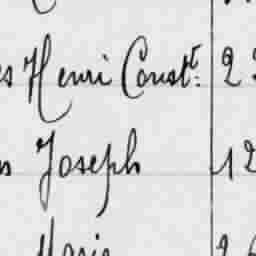 es Henri Const.t: 2
s Joseph 12
Marie 2